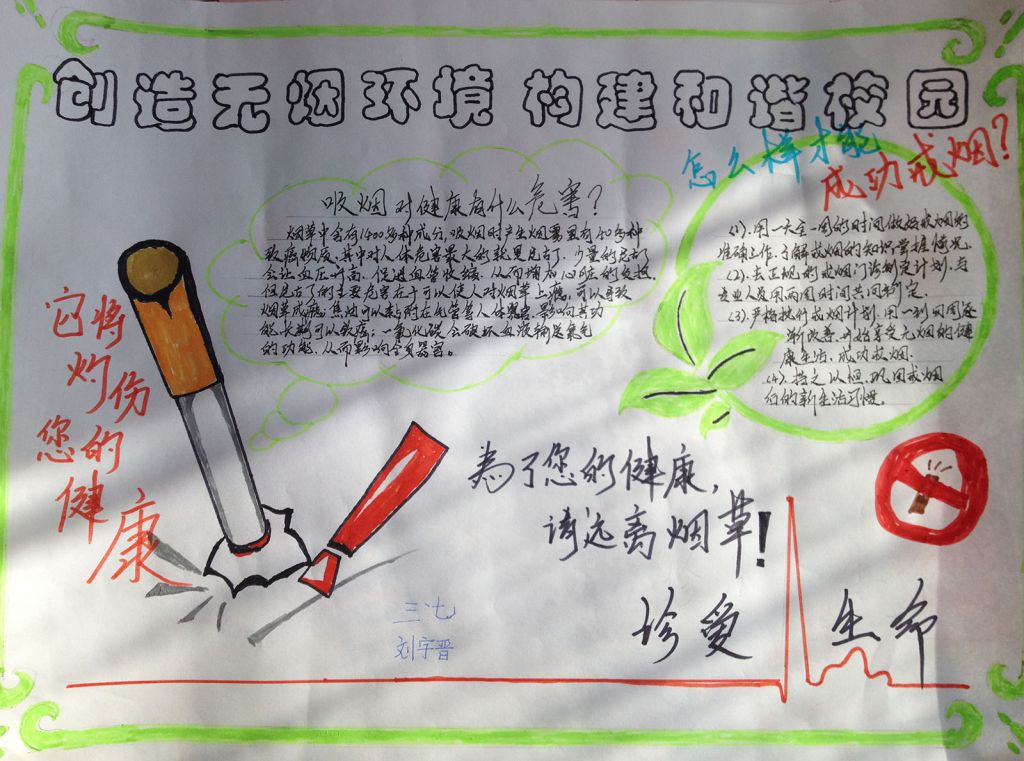 创造无烟环境 构建和谐校园
怎么样才能
成功戒烟?
吸烟对健康有什么危害?
烟草中含有1400多种成分,吸烟时产生烟雾里有40多种
致癌物质。其中对人体危害最大的就是尼古丁。少量的尼古丁
会让血压升高、促进血管收缩,从而增加心脏的负担。
但尼古丁的主要危害在于可以使人对烟草上瘾,可以导致
能,长期可以致癌;一氧化碳会破坏血液输送氧气
的功能,从而影响全身器官。
(1).用一天至一周的时间做好戒烟的
准备工作。了解戒烟的知识掌握情况。
(2).去正规的戒烟门诊制定计划,与
专业人员用两周时间共同制定。
(3).严格执行戒烟计划,用一到四周逐
渐改善,开始享受无烟的健
康生活,成功戒烟。
(4).持之以恒,巩固戒烟
后的新生活习惯。
它将
灼伤
您的
健
康
為了您的健康,
请远离烟草!
珍爱 生命
三七
刘宇晋